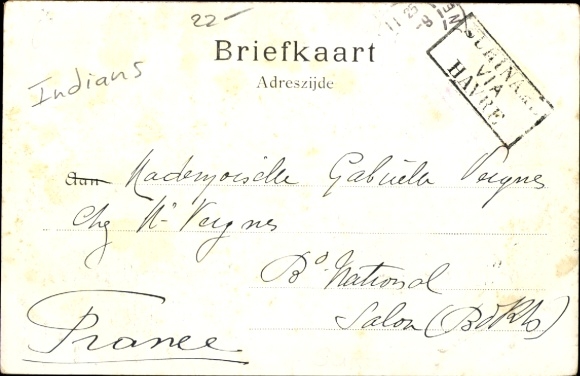 22-
Indians
Briefkaart
Adreszijde
SURINAME
VIA
HAVRE
Aan Mademoiselle Gabrielle Veignes
Chez Mr Veignes
Bd National
Salon (Bd Rh)
France